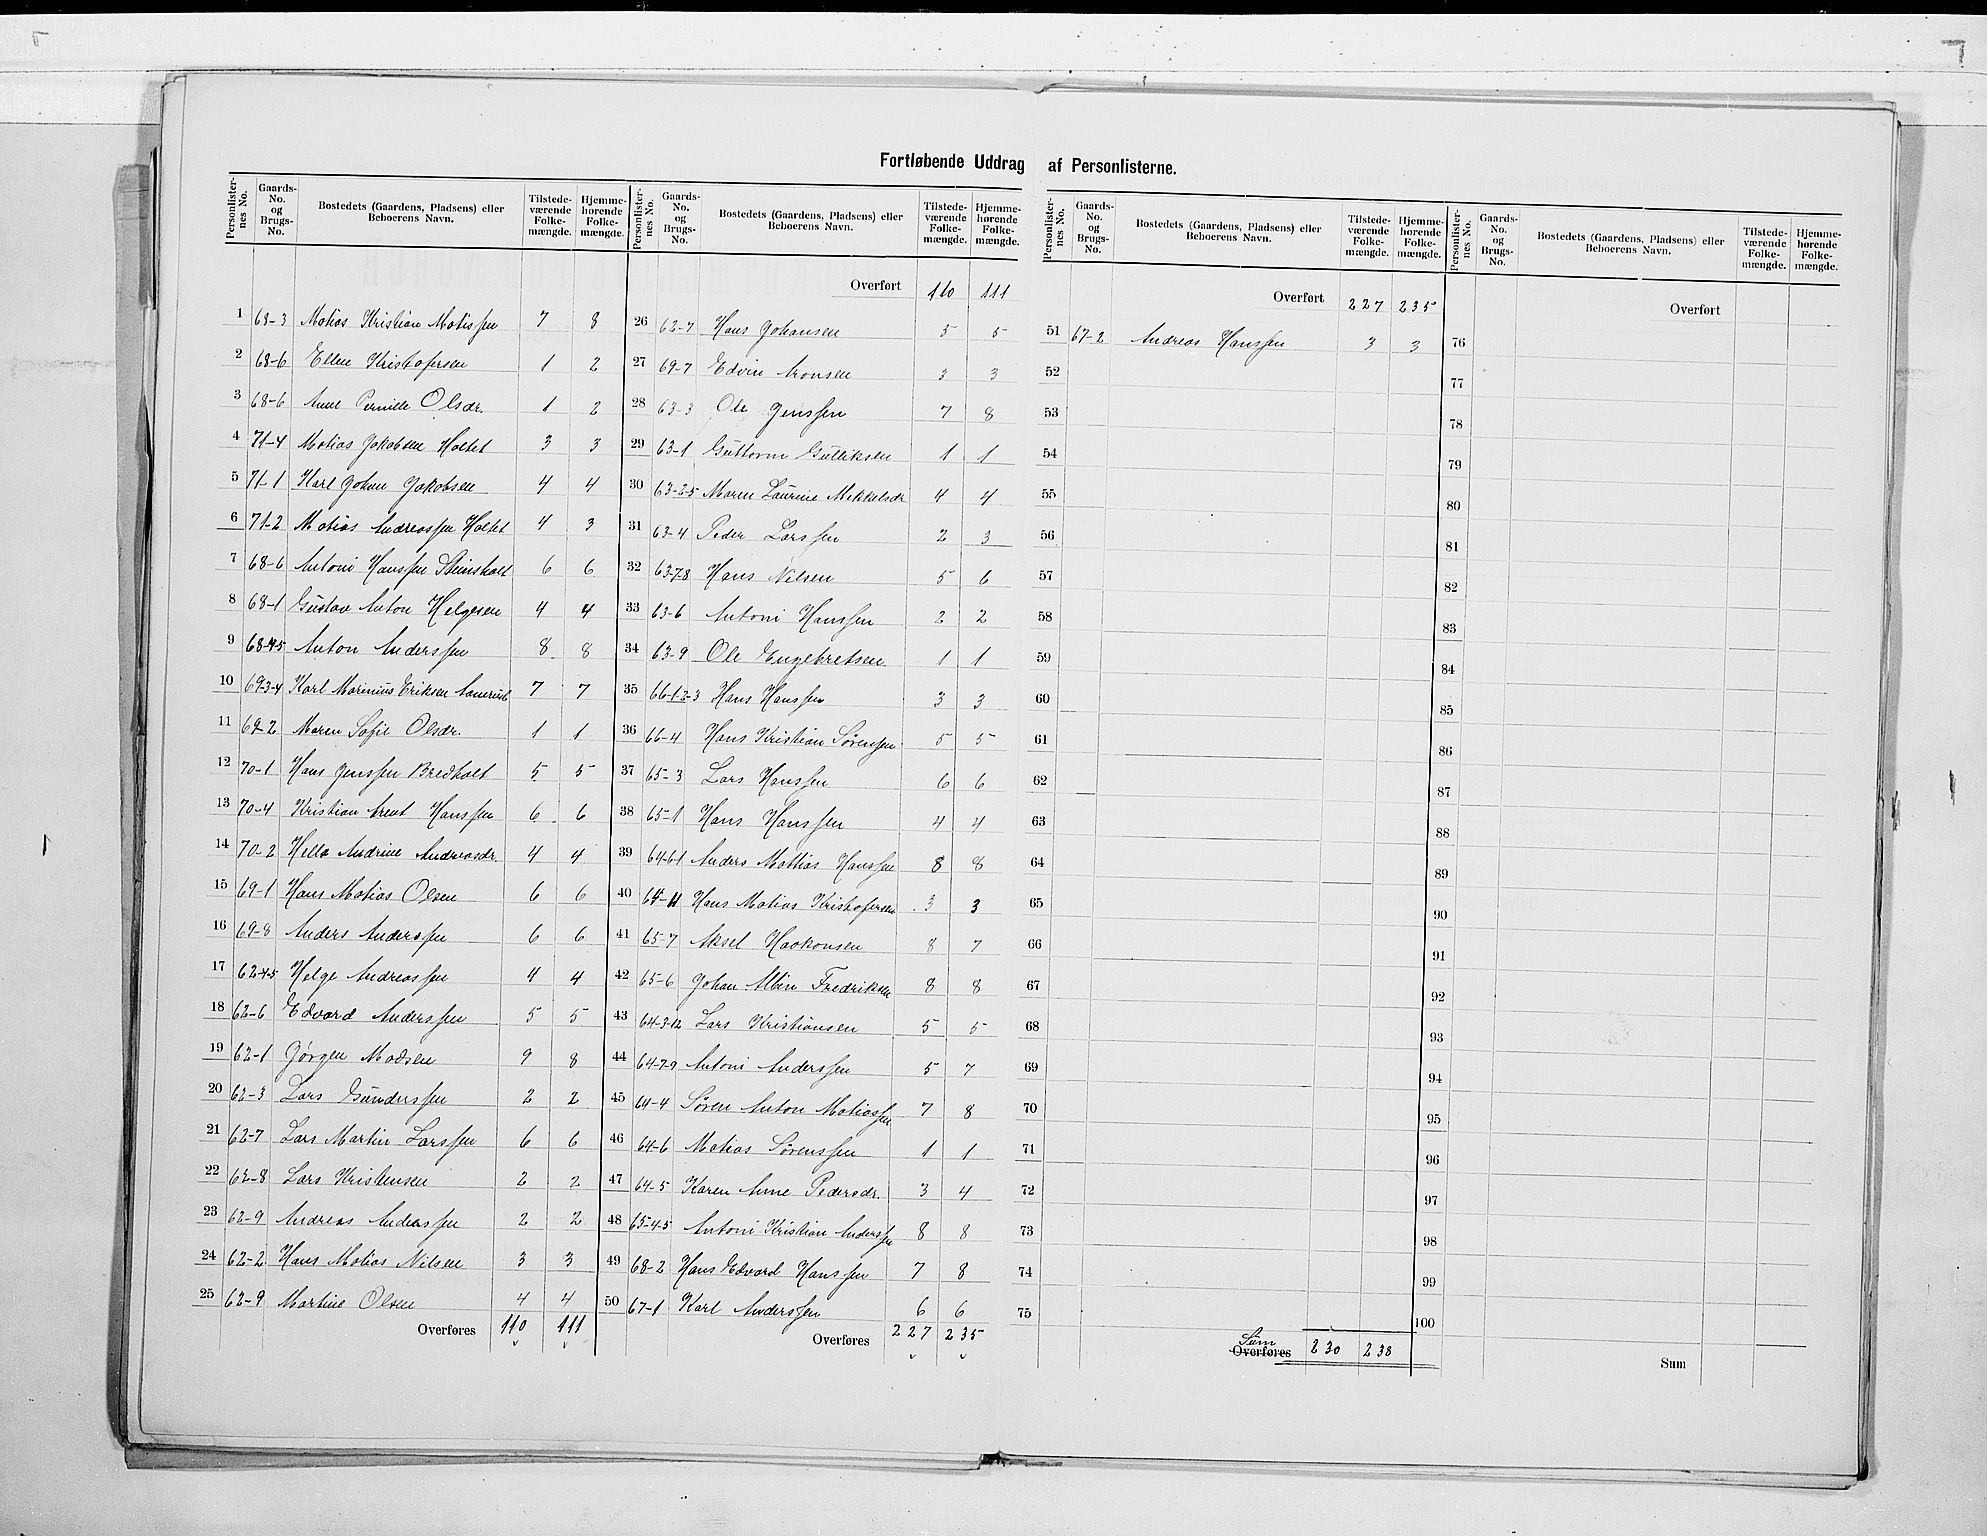 Fortløbende Uddrag af Personlisterne.
Personlister-nes No. Gaards-No. og Brugs-No. Bostedets (Gaardens, Pladsens) eller Beboerens Navn. Tilstede-værende Folke-mængde. Hjemme-hørende Folke-mængde.
1 68-3 Matias Kristian Matissen 7 8
2 68-6 Ellen Kristofersen 1 2
3 68-6 Anne Pernille Olsdr. 1 2
4 71-4 Matias Jakobsen Holtet 3 3
5 71-1 Karl Johan Jakobsen 4 4
6 71-2 Matias Andreassen Holtet 4 3
7 68-6 Antoni Hanssen Steinsholt 6 6
8 68-1 Gustav Anton Helgesen 4 4
9 68-4-5 Anton Anderssen 8 8
10 69-3-4 Karl Marinius Eriksen 7 7
11 69-2 Maren Sofie Olsdr. 1 1
12 70-1 Hans Jenssen Bredholt 5 5
13 70-4 Kristian Arent Hanssen 6 6
14 70-2 Helle Andrine Andreasdr. 4 4
15 69-1 Hans Matias Olsen 6 6
16 69-8 Anders Anderssen 6 6
17 62-4-5 Helge Andreassen 4 4
18 62-6 Edvard Anderssen 5 5
19 62-1 Jørgen Madsen 9 8
20 62-3 Lars Gunderssen 2 2
21 62-7 Lars Martin Larssen 6 6
22 62-8 Lars Kristensen 2 2
23 62-9 Andreas Anderssen 2 2
24 62-2 Hans Matias Nilsen 3 3
25 62-9 Martine Olsen 4 4
Overføres 110 111
Personlister-nes No. Gaards-No. og Brugs-No. Bostedets (Gaardens, Pladsens) eller Beboerens Navn. Tilstede-værende Folke-mængde. Hjemme-hørende Folke-mængde.
Overført 110 111
26 62-7 Hans Johansen 5 5
27 69-7 Edvin Aronsen 3 3
28 63-3 Ole Jenssen 7 8
29 63-1 Guttorm Gulliksen 1 1
30 63-2-5 Maren Laurine Mikkelsdr 4 4
31 63-4 Peder Larssen 2 3
32 63-7-8 Hans Nilsen 5 6
33 63-6 Antoni Hanssen 2 2
34 63-9 Ole Engebretsen 1 1
35 66-1-2-3 Hans Hanssen 3 3
36 66-4 Hans Kristian Sørenssen 5 5
37 65-3 Lars Hanssen 6 6
38 65-1 Hans Hanssen 4 4
39 64-6-1 Anders Mathias Hanssen 8 8
40 64-11 Hans Matias Kristofersen 3 3
41 65-7 Aksel Haakonsen 8 7
42 65-6 Johan Albin Fredriksen 8 8
43 64-3-12 Lars Kristiansen 5 5
44 64-7-9 Antoni Anderssen 5 7
45 64-4 Søren Anton Matiassen 7 8
46 64-6 Matias Sørenssen 1 1
47 64-5 Karen Anne Pedersdr. 3 4
48 65-4-5 Antoni Kristian Anderssen 8 8
49 68-2 Hans Edvard Hanssen 7 8
50 67-1 Karl Anderssen 6 6
Overføres 227 235
Personlister-nes No. Gaards-No. og Brugs-No. Bostedets (Gaardens, Pladsens) eller Beboerens Navn. Tilstede-værende Folke-mængde. Hjemme-hørende Folke-mængde.
Overført 227 235
51 67-2 Andreas Hanssen 3 3
52
53
54
55
56
57
58
59
60
61
62
63
64
65
66
67
68
69
70
71
72
73
74
75
Sum
Overføres 230 238
Personlister-nes No. Gaards-No. og Brugs-No. Bostedets (Gaardens, Pladsens) eller Beboerens Navn. Tilstede-værende Folke-mængde. Hjemme-hørende Folke-mængde.
Overført
76
77
78
79
80
81
82
83
84
85
86
87
88
89
90
91
92
93
94
95
96
97
98
99
100
Sum